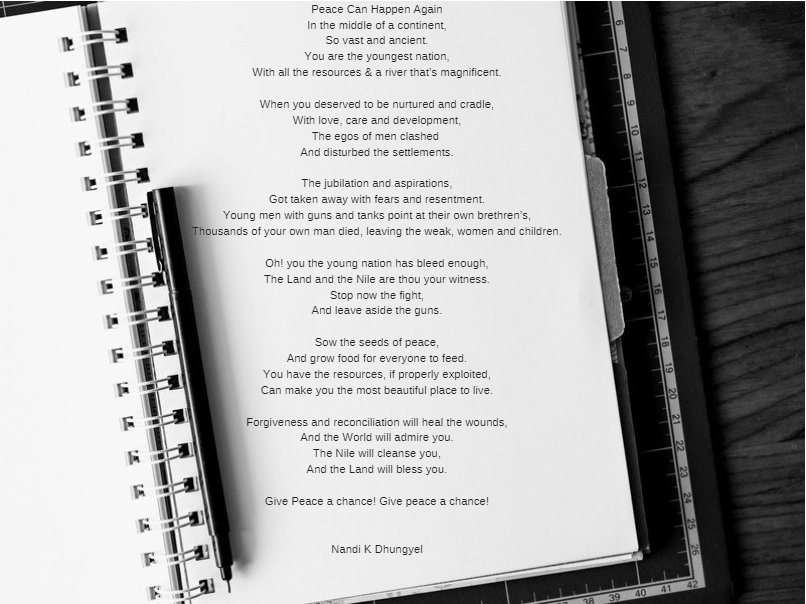 Peace Can Happen Again
In the middle of a continent,
So vast and ancient.
You are the youngest nation,
With all the resources & a river that's magnificent.

When you deserved to be nurtured and cradle,
With love, care and development,
The egos of men clashed
And disturbed the settlements.

The jubilation and aspirations,
Got taken away with fears and resentment.
Young men with guns and tanks point at their own brethren's,
Thousands of your own man died, leaving the weak, women and children.

Oh! you the young nation has bleed enough,
The Land and the Nile are thou your witness.
Stop now the fight,
And leave aside the guns.

Sow the seeds of peace,
And grow food for everyone to feed.
You have the resources, if properly exploited,
Can make you the most beautiful place to live.

Forgiveness and reconciliation will heal the wounds,
And the World will admire you.
The Nile will cleanse you,
And the Land will bless you.

Give Peace a chance! Give peace a chance!

Nandi K Dhungyel

6
7
8
9
10
11
12
13
14
15
16
17
18
19
20
21
22
23
24
25
26
38
39
40
41
42